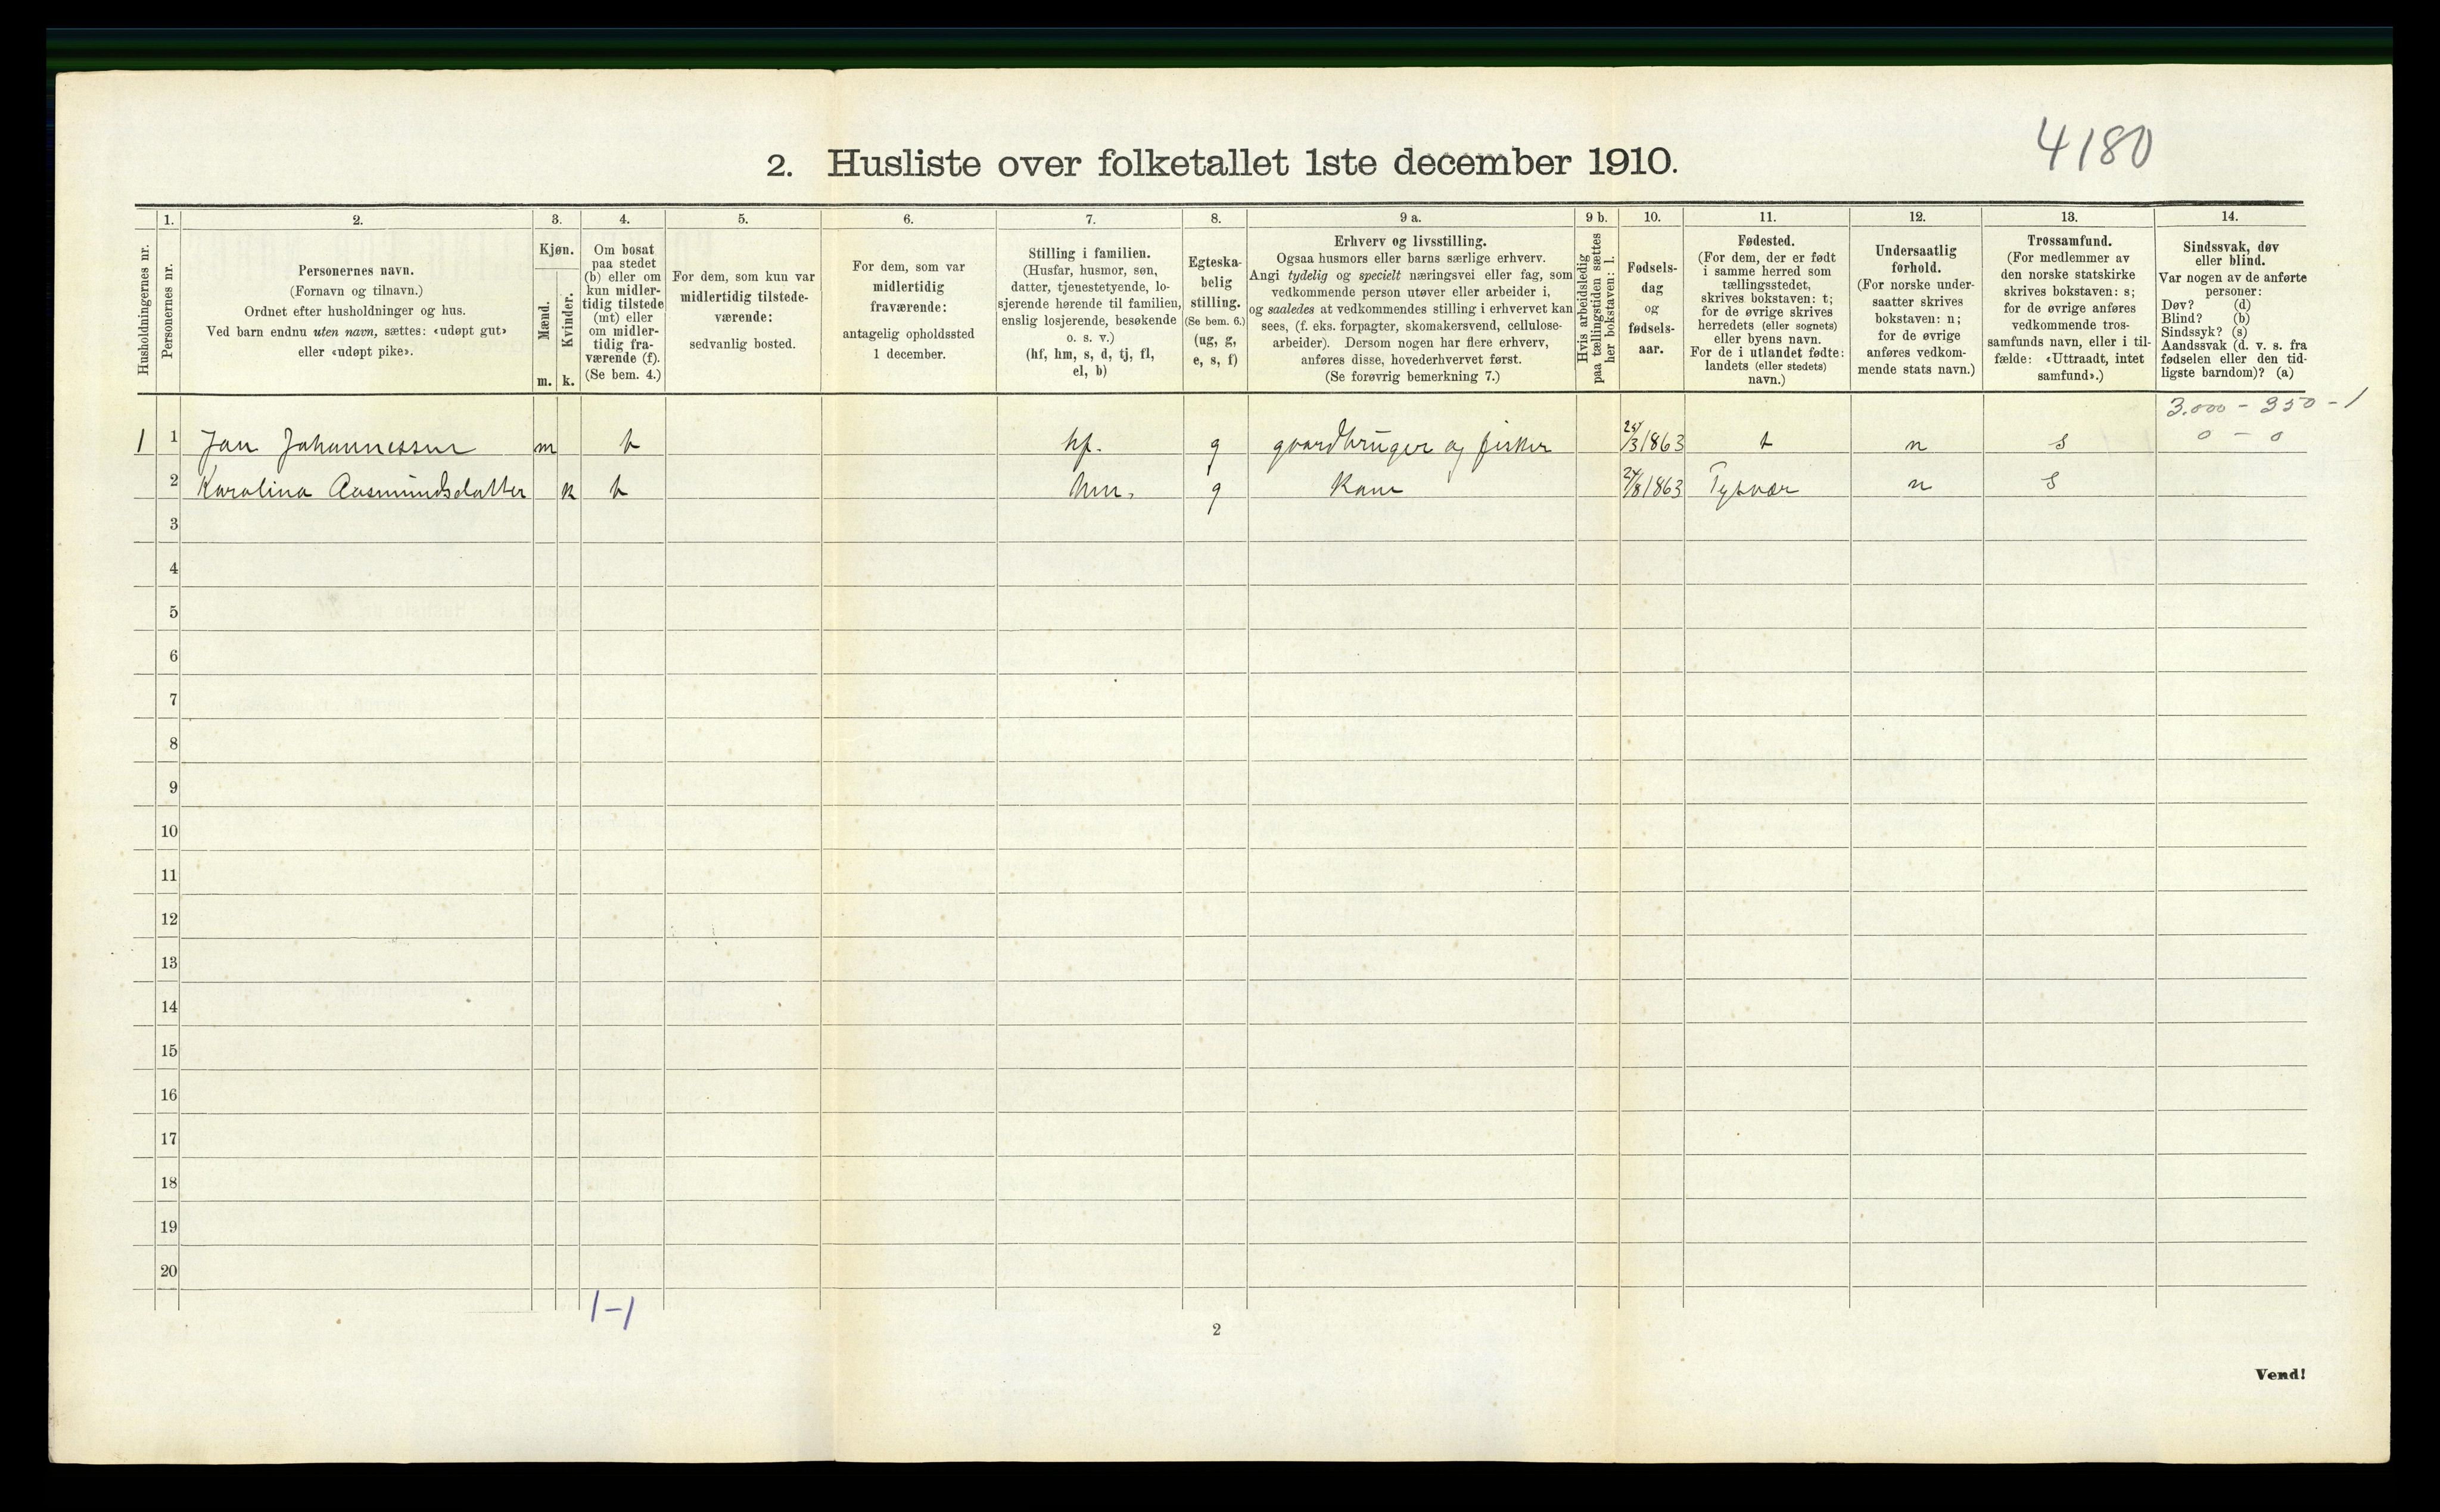 4180
2. Husliste over folketallet 1ste december 1910.
Husholdningernes nr.
1.
Personernes nr.
2.
Personernes navn.
(Fornavn og tilnavn.)
Ordnet efter husholdninger og hus.
Ved barn endnu uten navn, sættes: «udøpt gut»
eller «udøpt pike».
3.
Kjøn.
Mænd.
m.
Kvinder.
k.
4.
Om bosat
paa stedet
(b) eller om
kun midler-
tidig tilstede
(mt) eller
om midler-
tidig fra-
værende (f).
(Se bem. 4.)
5.
For dem, som kun var
midlertidig tilstede-
værende:
sedvanlig bosted.
6.
For dem, som var
midlertidig
fraværende:
antagelig opholdssted
1 december.
7.
Stilling i familien.
(Husfar, husmor, søn,
datter, tjenestetyende, lo-
sjerende hørende til familien,
enslig losjerende, besøkende
o. s. v.)
(hf, hm, s, d, tj, fl,
el, b)
8.
Egteska-
belig
stilling.
(Se bem. 6.)
(ug, g,
e, s, f)
9 a.
Erhverv og livsstilling.
Ogsaa husmors eller barns særlige erhverv.
Angi tydelig og specielt næringsvei eller fag, som
vedkommende person utøver eller arbeider i,
og saaledes at vedkommendes stilling i erhvervet kan
sees, (f. eks. forpagter, skomakersvend, cellulose-
arbeider). Dersom nogen har flere erhverv,
anføres disse, hovederhvervet først.
(Se forøvrig bemerkning 7.)
9 b.
Hvis arbeidsledig
paa tællingstiden sættes
her bokstaven: l.
10.
Fødsels-
dag
og
fødsels-
aar.
11.
Fødested.
(For dem, der er født
i samme herred som
tællingsstedet,
skrives bokstaven: t;
for de øvrige skrives
herredets (eller sognets)
eller byens navn.
For de i utlandet fødte:
landets (eller stedets)
navn.)
12.
Undersaatlig
forhold.
(For norske under-
saatter skrives
bokstaven: n;
for de øvrige
anføres vedkom-
mende stats navn.)
13.
Trossamfund.
(For medlemmer av
den norske statskirke
skrives bokstaven: s;
for de øvrige anføres
vedkommende tros-
samfunds navn, eller i til-
fælde: «Uttraadt, intet
samfund».)
14.
Sindssvak, døv
eller blind.
Var nogen av de anførte
personer:
Døv? (d)
Blind? (b)
Sindssyk? (s)
Aandssvak (d. v. s. fra
fødselen eller den tid-
ligste barndom)? (a)
3.000 - 350 - 1
0 - 0
1 1 Jan Johannessen m b hf. g gaardbruger og fisker /3 1863 t n s
2 Karolina Aasmundsdatter k b hm. g Kone /8 1863 Tysvær n s
3
4
5
6
7
8
9
10
11
12
13
14
15
16
17
18
19
20
1-1
2
Vend!